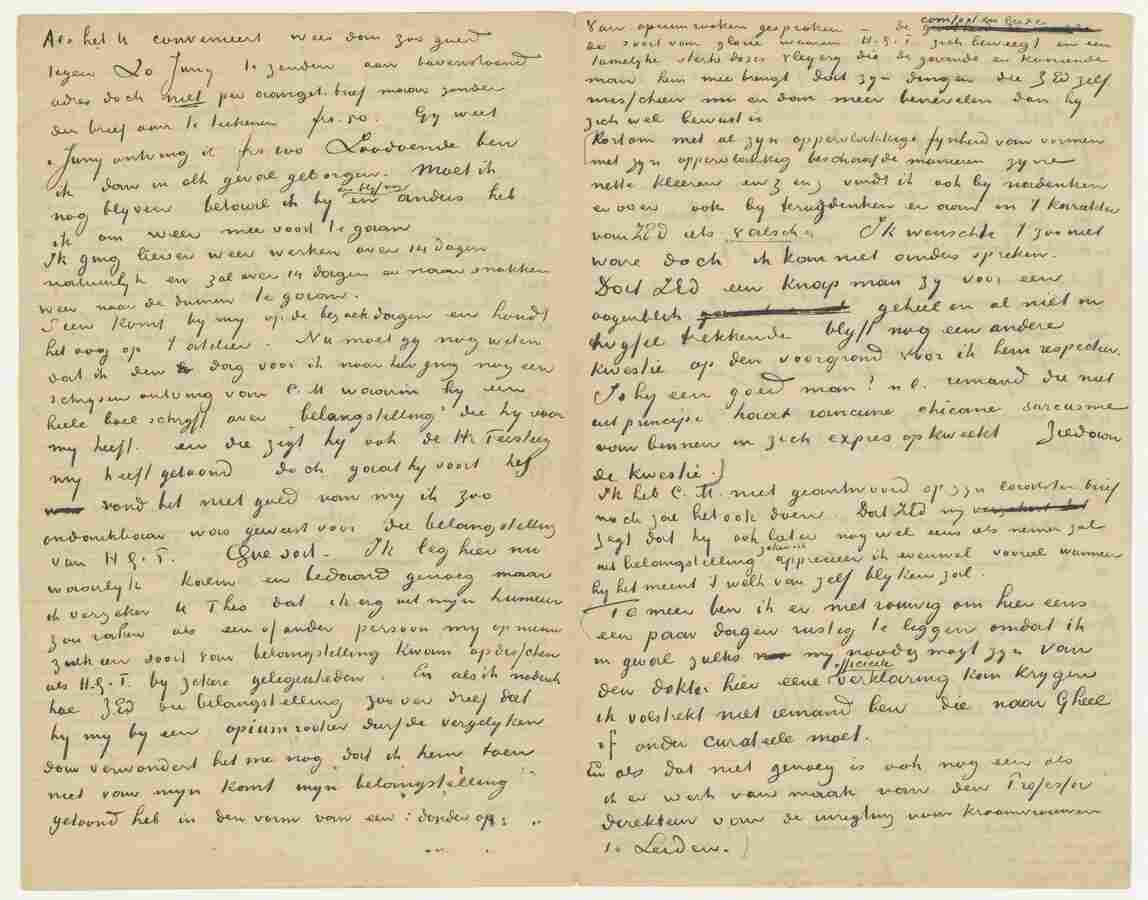 Als het U convenieert wees dan zoo goed
tegen 20 Juny te zenden aan bovenstaand
adres doch niet per aanget. brief maar zonder
den brief aan te teekenen frs. 50. Gy weet
1 Juny ontving ik frs 100 Zoodoende ben
ik dan in elk geval geborgen. Moet ik
nog blyven betaal ik by en blyf nog
in anders heb
ik om weer mee voort te gaan
Ik ging liever weer werken over 14 dagen
natuurlyk en zal over 14 dagen er naar snakken
weer naar de duinen te gaan.
Sien komt by my op de bezoekdagen en houdt
het oog op 't atelier. Nu moet gy nog weten
dat ik den dag voor ik naar hier ging nog een
schryven ontving van C.M waarin hy een
heele boel schryft over "belangstelling" die hy voor
my heeft. en die zegt hy ook de Hr Tersteeg
my heeft getoond doch gaat hy voort hy
vond het niet goed van my ik zoo
ondankbaar was geweest voor die belangstelling
van H.G.T. Que soit. Ik leg hier nu
waarlyk kalm en bedaard genoeg maar
ik verzeker U Theo dat ik erg uit myn humeur
zou raken als een of ander persoon my op nieuw
zulk een soort van belangstelling kwam opdisschen
als H.G.T. by zekere gelegenheden. En als ik nadenk
hoe ZEd die belangstelling zoo ver dreef dat
hy my by een opiumrooker durfde vergelyken
dan verwondert het me nog dat ik hem toen
niet van myn kant myn "belangstelling"
getoond heb in den vorm van een: donder op:
Van opiumrooken gesproken – de comfort en luxe
de soort van glorie waarin H.G.T. zich beweegt en een
tamelyke sterke dosis vleyery die de gaande en komende
man hem mee brengt dat zyn dingen die ZEd zelf
misschien nu en dan meer benevelen dan hy
zich wel bewust is
Kortom met al zyn oppervlakkige fynheid van vormen
met zyn oppervlakkig beschaafde manieren zyne
nette kleeren enz enz vindt ik ook by nadenken
er over ook by terugdenken er aan in 't karakter
van ZEd iets valsch. Ik wenschte 't zoo niet
ware doch ik kan niet anders spreken.
Dat ZEd een knap man zy voor een
oogenblik geheel en al niet in
twyfel trekkende blyft nog een andere
kwestie op den voorgrond voor ik hem respecteer.
Is hy een goed man? n.l. iemand die niet
uit principe haat rancune chicane sarcasme
van binnen in zich expres opkweekt Ziedaar
de kwestie.
Ik heb C.M. niet geantwoord op zyn laatsten brief
noch zal het ook doen. Dat ZEd my
zegt dat hy ook later nog wel eens iets nemen zal
uit belangstelling apprecieer ik evenwel vooral wanneer
hy het meent 't welk van zelf blyken zal.
Te meer ben ik er niet rouwig om hier eens
een paar dagen rustig te liggen omdat ik
in geval zulks my noodig mogt zyn van
den dokter hier eene officieele verklaring kan krygen
ik volstrekt niet iemand ben die naar Gheel
of onder curateele moet.
En als dat niet genoeg is ook nog een als
ik er werk van maak van den Professor
direkteur van de inrigting voor kraamvrouwen
te Leiden.